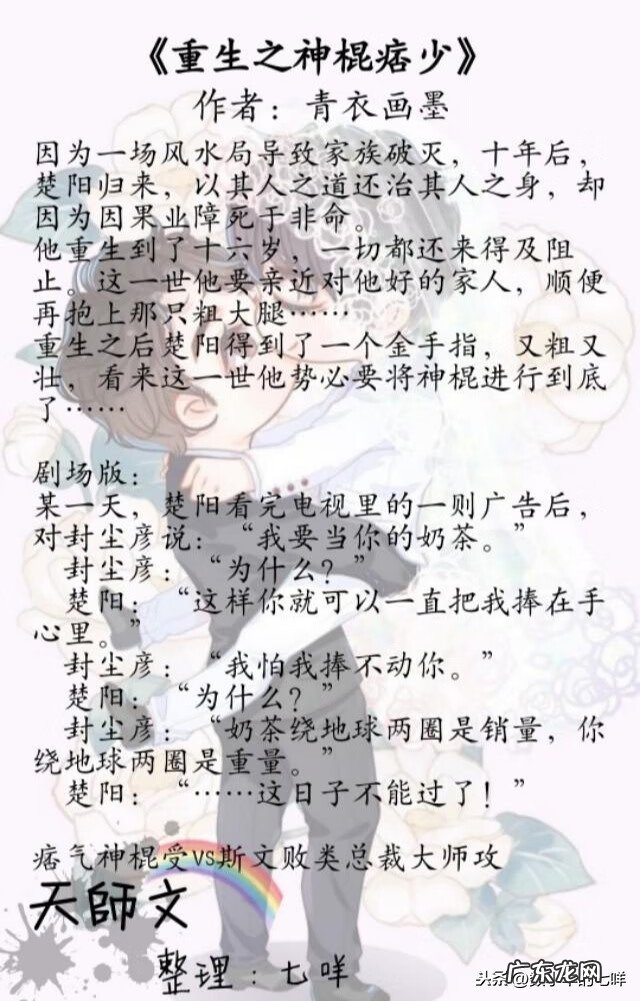 《重生之神棍痞少》
作者：青衣画墨
因为一场风水局导致家族破灭，十年后，
楚阳归来，以其人之道还治其人之身，却
因为因果业障死于非命。
他重生到了十六岁，一切都还来得及阻
止。这一世他要亲近对他好的家人，顺便
再抱上那只粗大腿……
重生之后楚阳得到了一个金手指，又粗又
壮，看来这一世他势必要将神棍进行到底
了……
剧场版：
某一天，楚阳看完电视里的一则广告后，
对封尘彦说：“我要当你的奶茶。”
封尘彦：“为什么？”
楚阳：“这样你就可以一直把我捧在手
心里。”
封尘彦：“我怕我捧不动你。”
楚阳：“为什么？”
封尘彦：“奶茶绕地球两圈是销量，你
绕地球两圈是重量。”
楚阳：“……这日子不能过了！”
痞气神棍受vs斯文败类总裁大师攻
天師文
整理：七咩
头条@
七咩
广东龙网